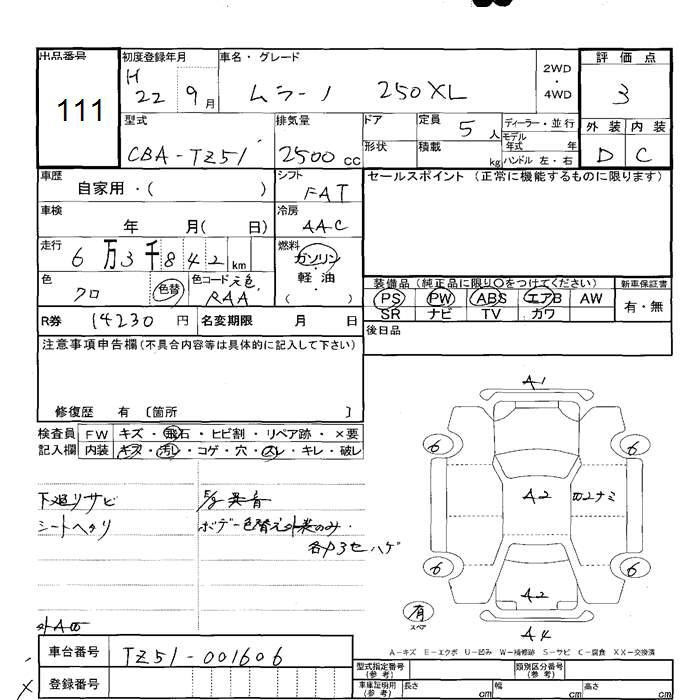 出品番号 初度登録年月 車名・グレード 評価点
111
H 22 9月 ムラーノ 250XL 2WD・4WD 3
型式 排気量 ドア 定員 5人 ディーラー・並行 外装 内装
CBA-TZ51 2500cc 形状 積載 kg モデル年式 年 D C
ハンドル 左・右
車歴 自家用・( ) シフト FAT セールスポイント (正常に機能するものに限ります)
車検 年 月( 日) 冷房 AAC
走行 6万3千842km 燃料 ガソリン・軽・油 ( )
色 クロ 色替 色コード 元色 RAA 装備品 (純正品に限り○をつけてください) 新車保証書
PS PW ABS エアB AW 有・無
SR ナビ TV カワ
R券 14230円 名変期限 月 日 後日品
注意事項申告欄 (不具合内容等は具体的に記入して下さい)
修復歴 有 〔箇所 〕
検査員 FW キズ・飛石・ヒビ割・リペア跡・×要
記入欄 内装 キズ・汚レ・コゲ・穴・スレ・キレ・破レ
下廻りサビ
シートヘタリ
E/g異音
ボデー色替え外装のみ・
A1
6 6
A2
6 6
A2
有
スペア
A4
A-キズ E-エクボ U-凹み W-補修跡 S-サビ C-腐食 XX-交換済
車台番号 TZ51-001606
登録番号
型式指定番号 (参考) 類別区分番号 (参考)
車庫証明用 (参考) 長さ cm 幅 cm 高さ cm